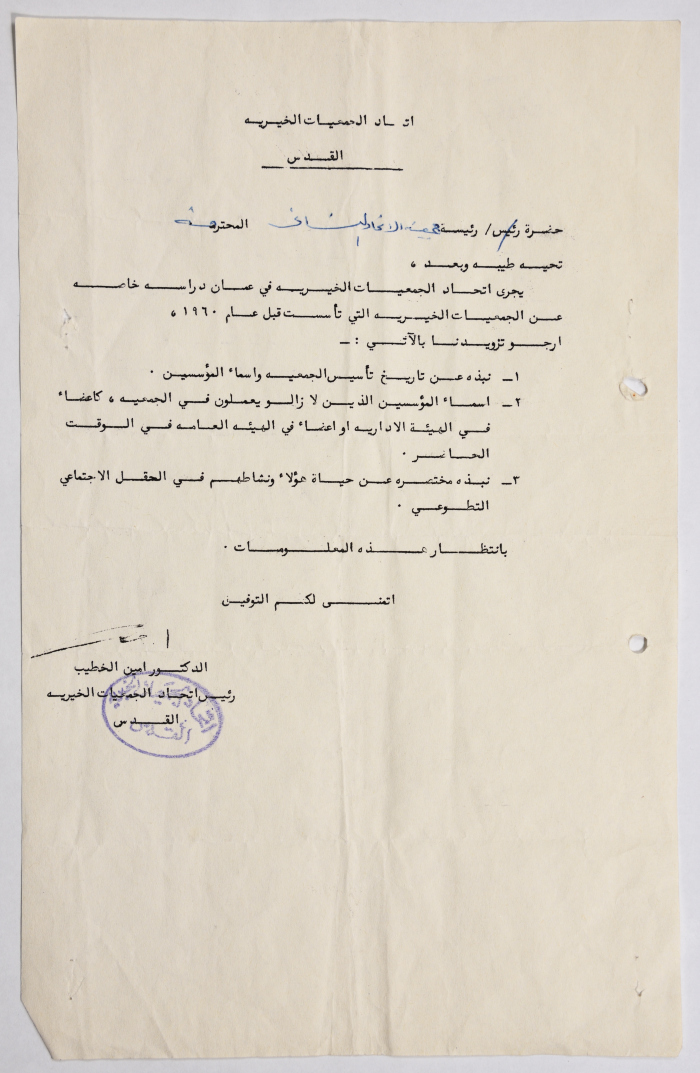 اتحاد الجمعيات الخيريه
القدس
حضرة رئيس/ رئيسة جمعية الاتحاد النسائي المحترمة
تحيه طيبه وبعد ،
يجرى اتحاد الجمعيات الخيريه في عمان دراسه خاصه
عن الجمعيات الخيريه التي تأسست قبل عام ١٩٦٠ ،
ارجو تزويدنا بالآتي :ـ
١ـ نبذه عن تاريخ تأسيس الجمعيه واسماء المؤسسين .
٢ـ اسماء المؤسسين الذين لا زالو يعملون في الجمعيه ، كاعضاء
في الهيئة الاداريه او اعضاء في الهيئه العامه في الوقت
الحاضر .
٣ـ نبذه مختصره عن حياة هؤلاء ونشاطهم في الحقل الاجتماعي
التطوعي .
بانتظار هذه المعلومات .
اتمنى لكم التوفيق
الدكتور امين الخطيب
رئيس اتحاد الجمعيات الخيريه
القدس
اتحاد الجمعيات الخيرية
القدس